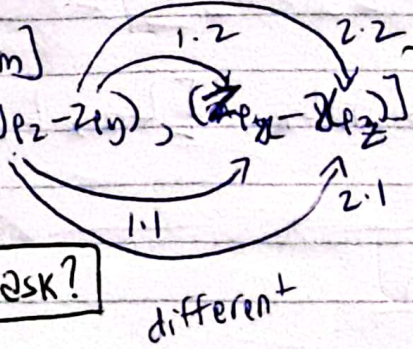 1.2 2.2
m]
)p_z - zp_y), (zp_x - xp_z)]
1.1 2.1
ask?
different